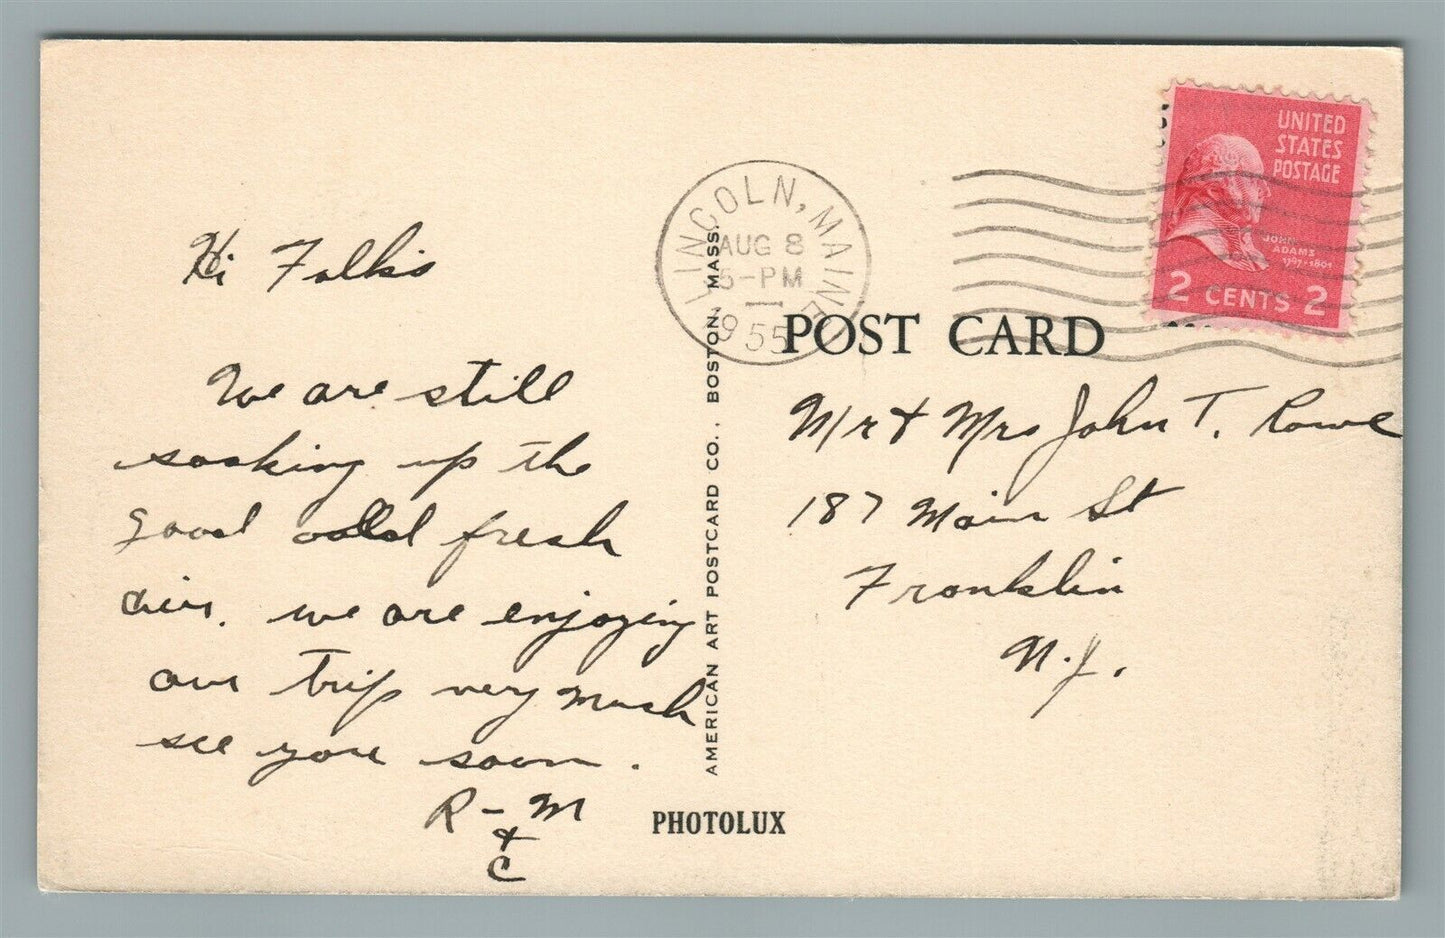 Hi Folks
We are still
soaking up the
good old fresh
air. we are enjoying
our trip very much
see you soon.
R - M
+
C
AMERICAN ART POSTCARD CO., BOSTON, MASS.
PHOTOLUX
LINCOLN, MAINE
AUG 8
5-PM
1955
POST CARD
UNITED
STATES
POSTAGE
JOHN
ADAMS
1797-1801
2 CENTS 2
Mr + Mrs John T. Rowe
187 Main St
Franklin
N.J.